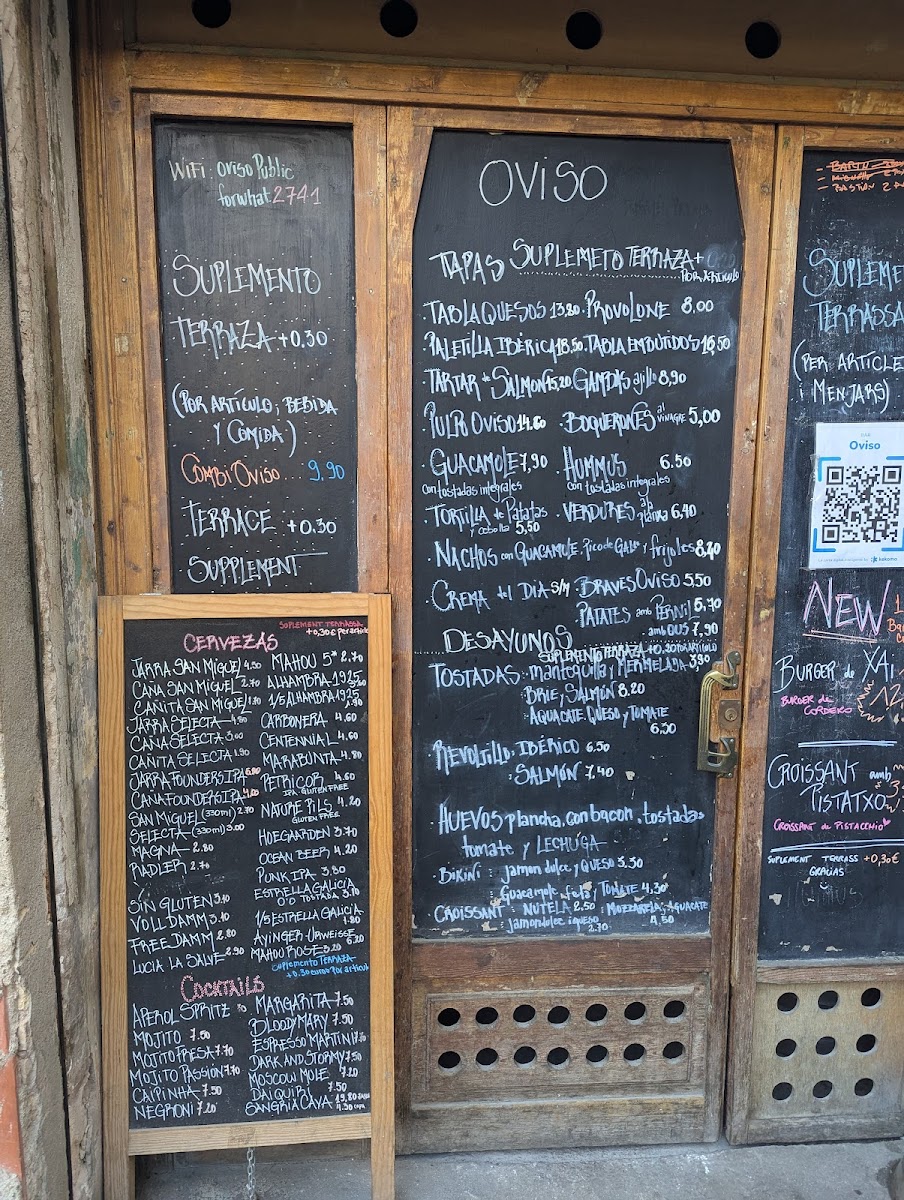 WiFi: oviso Public
forwhat2741
SUPLEMENTO
TERRAZA +0.30
(POR ARTICULO; BEBIDA
Y COMIDA)
COMBI OVISO... 9.90
TERRACE +0.30
SUPPLEMENT
CERVEZAS
SUPLEMENT TERRASSA
+0,30€ per article
JARRA SAN MIGUEL 4.50
CAÑA SAN MIGUEL 2.70
CAÑITA SAN MIGUEL 1.70
JARRA SELECTA 4.80
CAÑA SELECTA 3.00
CAÑITA SELECTA 1.90
JARRA FOUNDERS IPA
CAÑA FOUNDERS IPA
SAN MIGUEL (330ml) 2.70
SELECTA (330ml) 3.00
MAGNA 2.80
RADLER 2.70
SIN GLUTEN 3.10
VOLL DAMM 3.10
FREE DAMM 2.80
LUCIA LA SALVE 2.90
MAHOU 5* 2.70
ALHAMBRA 1925
1/5 ALHAMBRA 1925
1.90
CARBONERA 4.60
CENTENNIAL 4.60
MARABUNTA 4.80
PETRICOR 4.60
IPA GLUTEN FREE
NATURE PILS 4.20
GLUTEN FREE
HOEGAARDEN 3.70
OCEAN BEER 4.20
PUNK IPA 3.80
ESTRELLA GALICIA
0'0 TOSTADA 3.10
1/5 ESTRELLA GALICIA
1.80
AYINGER URWEISSE
6.20
MAHOU ROSÉ 3.20
SUPLEMENTO TERRAZA
+0.30 euros por articulo
COCKTAILS
APEROL SPRITZ
MOJITO 7.50
MOJITO FRESA 7.70
MOJITO PASSION 7.70
CAIPINHA 7.50
NEGRONI 7.20
MARGARITA 7.50
BLOODY MARY 7.50
ESPRESSO MARTINI
DARK AND STORMY 7.50
MOSCOW MOLE 7.20
DAIQUIRI 7.50
SANGRIA CAVA 19,80
4.50 copa
OVISO
TAPAS SUPLEMETO TERRAZA+
POR ARTICULO
TABLA QUESOS 13.80 · PROVOLONE 8,00
PALETILLA IBÉRICA 18.50 · TABLA EMBUTIDOS 16,50
TARTAR de SALMON 15,20 GAMBAS ajillo 8,90
PULPO OVISO 14.80 · BOQUERONES al vinagre 5,00
GUACAMOLE 7,90 · HUMMUS 6.50
con tostadas integrales con tostadas integrales
· TORTILLA de Patatas · VERDURES a la planxa 6.40
y cebolla 5,50
· NACHOS con GUACAMOLE, Pico de Gallo y frijoles 8,20
· CREMA del DIA S/M · BRAVES OVISO 5.50
· PATATES amb PERNIL 6,70
amb OUS 7,90
DESAYUNOS
SUPLEMENTO TERRAZA +0.20 POR ARTICULO
TOSTADAS: mantequilla y MERMELADA 3.90
BRIE y SALMÓN 8.20
· AGUACATE, QUESO Y TOMATE
6.50
· REVOLTILLO: IBÉRICO 6.50
: SALMÓN 7.40
· HUEVOS plancha, con bacon, tostadas
tomate y LECHUGA
· BIKINI: jamon dulce y QUESO 3.50
Guacamole, feta y TOMATE 4.30
· CROISSANT: NUTELA 2.50 : MOZZARELA, AGUACATE
jamondolce i queso 2.70 4,50
SUPLEME
TERRASSA
(PER ARTICLE
i MENJARS)
Oviso
NEW
BURGER de XAI
BURGER de
CORDERO
CROISSANT amb
PISTATXO
CROISSANT de PISTACCHIO
SUPLEMENT TERRASS +0,30€
GRACIAS